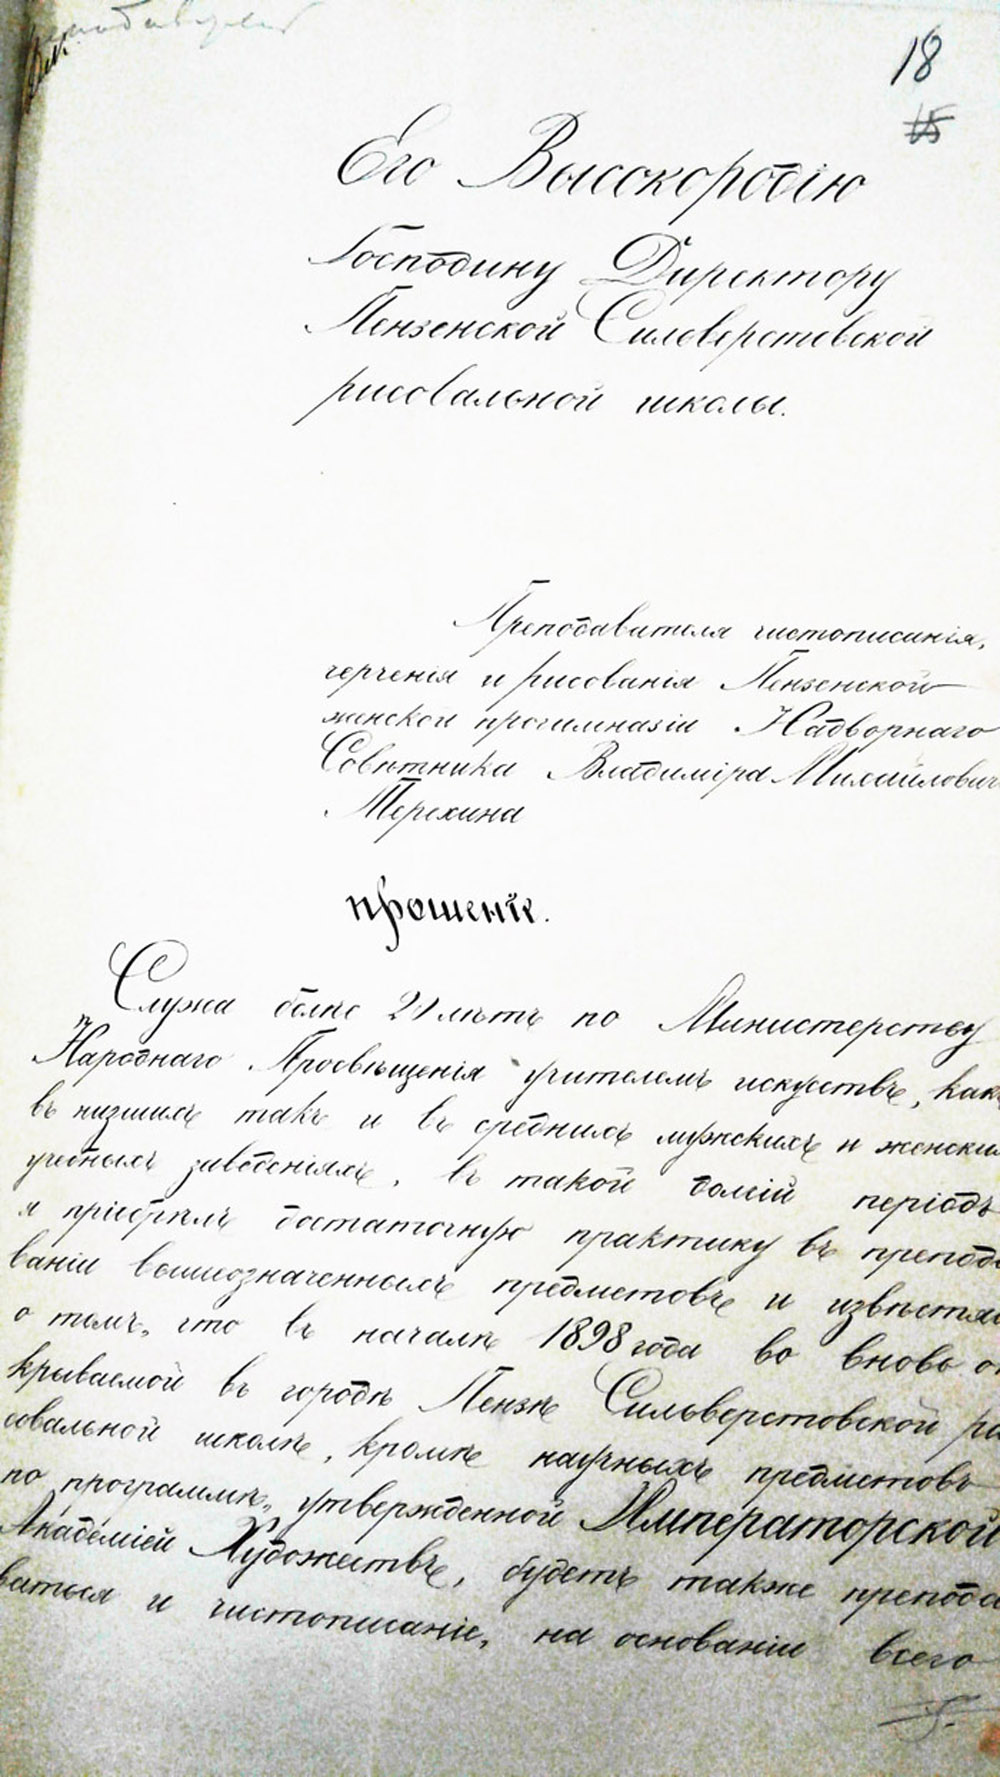 18
15
Его Высокородію
Господину Директору
Пензенской Силоверстовской
рисовальной школы.
Преподавателя чистописанія,
черченія и рисованія Пензенской
женской прогимназіи Надворнаго
Совѣтника Владиміра Михайлович
Терехина
прошеніе.
Служа болѣе 20 лѣтъ по Министерству
Народнаго Просвѣщенія учителемъ искусствъ, какъ
въ низшихъ такъ и въ среднихъ мужскихъ и женских
учебныхъ заведеніяхъ, въ такой долгій періодъ
я пріобрѣлъ достаточную практику въ препода
ваніи вышеозначенныхъ предметовъ и извѣстяс
о томъ, что въ началѣ 1898 года во вновь от
крываемой въ городѣ Пензѣ Сильверстовской ри
совальной школѣ, кромѣ научныхъ предметовъ
по программѣ, утвержденной Императорской
Академіей Художествъ, будетъ также препода
ваться и чистописаніе, на основаніи всего